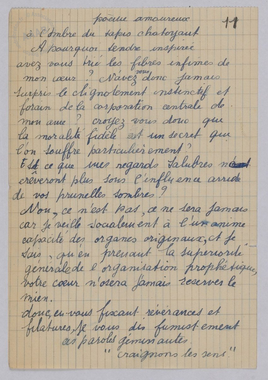 poésie amoureux 11
à l'Ombre du tapis chatoyant
A pourquoi, tendre inspirée
avez vous tué les fibres infimes de
mon cœur ? N'avez vous donc jamais
surpris le clignotement instinctif et
forain de la corporation centrale de
mon ame ? croyez vous donc que
la moralité fidèle est un secret que
l'on souffre particulièrement ?
Est ce que mes regards salubres ne
crèveront plus sous l'influence
de vos prunelles sombres ?
Non, ce n'est pas, ce ne sera jamais
car je veille socialement à l'unanime
capacité des organes originaux, et je
sais, qu'en pressant la supériorité
generale de l'organisation prophétique,
votre coeur n'osera jamais reserves le
mien.
donc, en vous fixant révérances et
filatures, je vous dis fumistement
ces paroles geminantes.
"Craignons les sens"